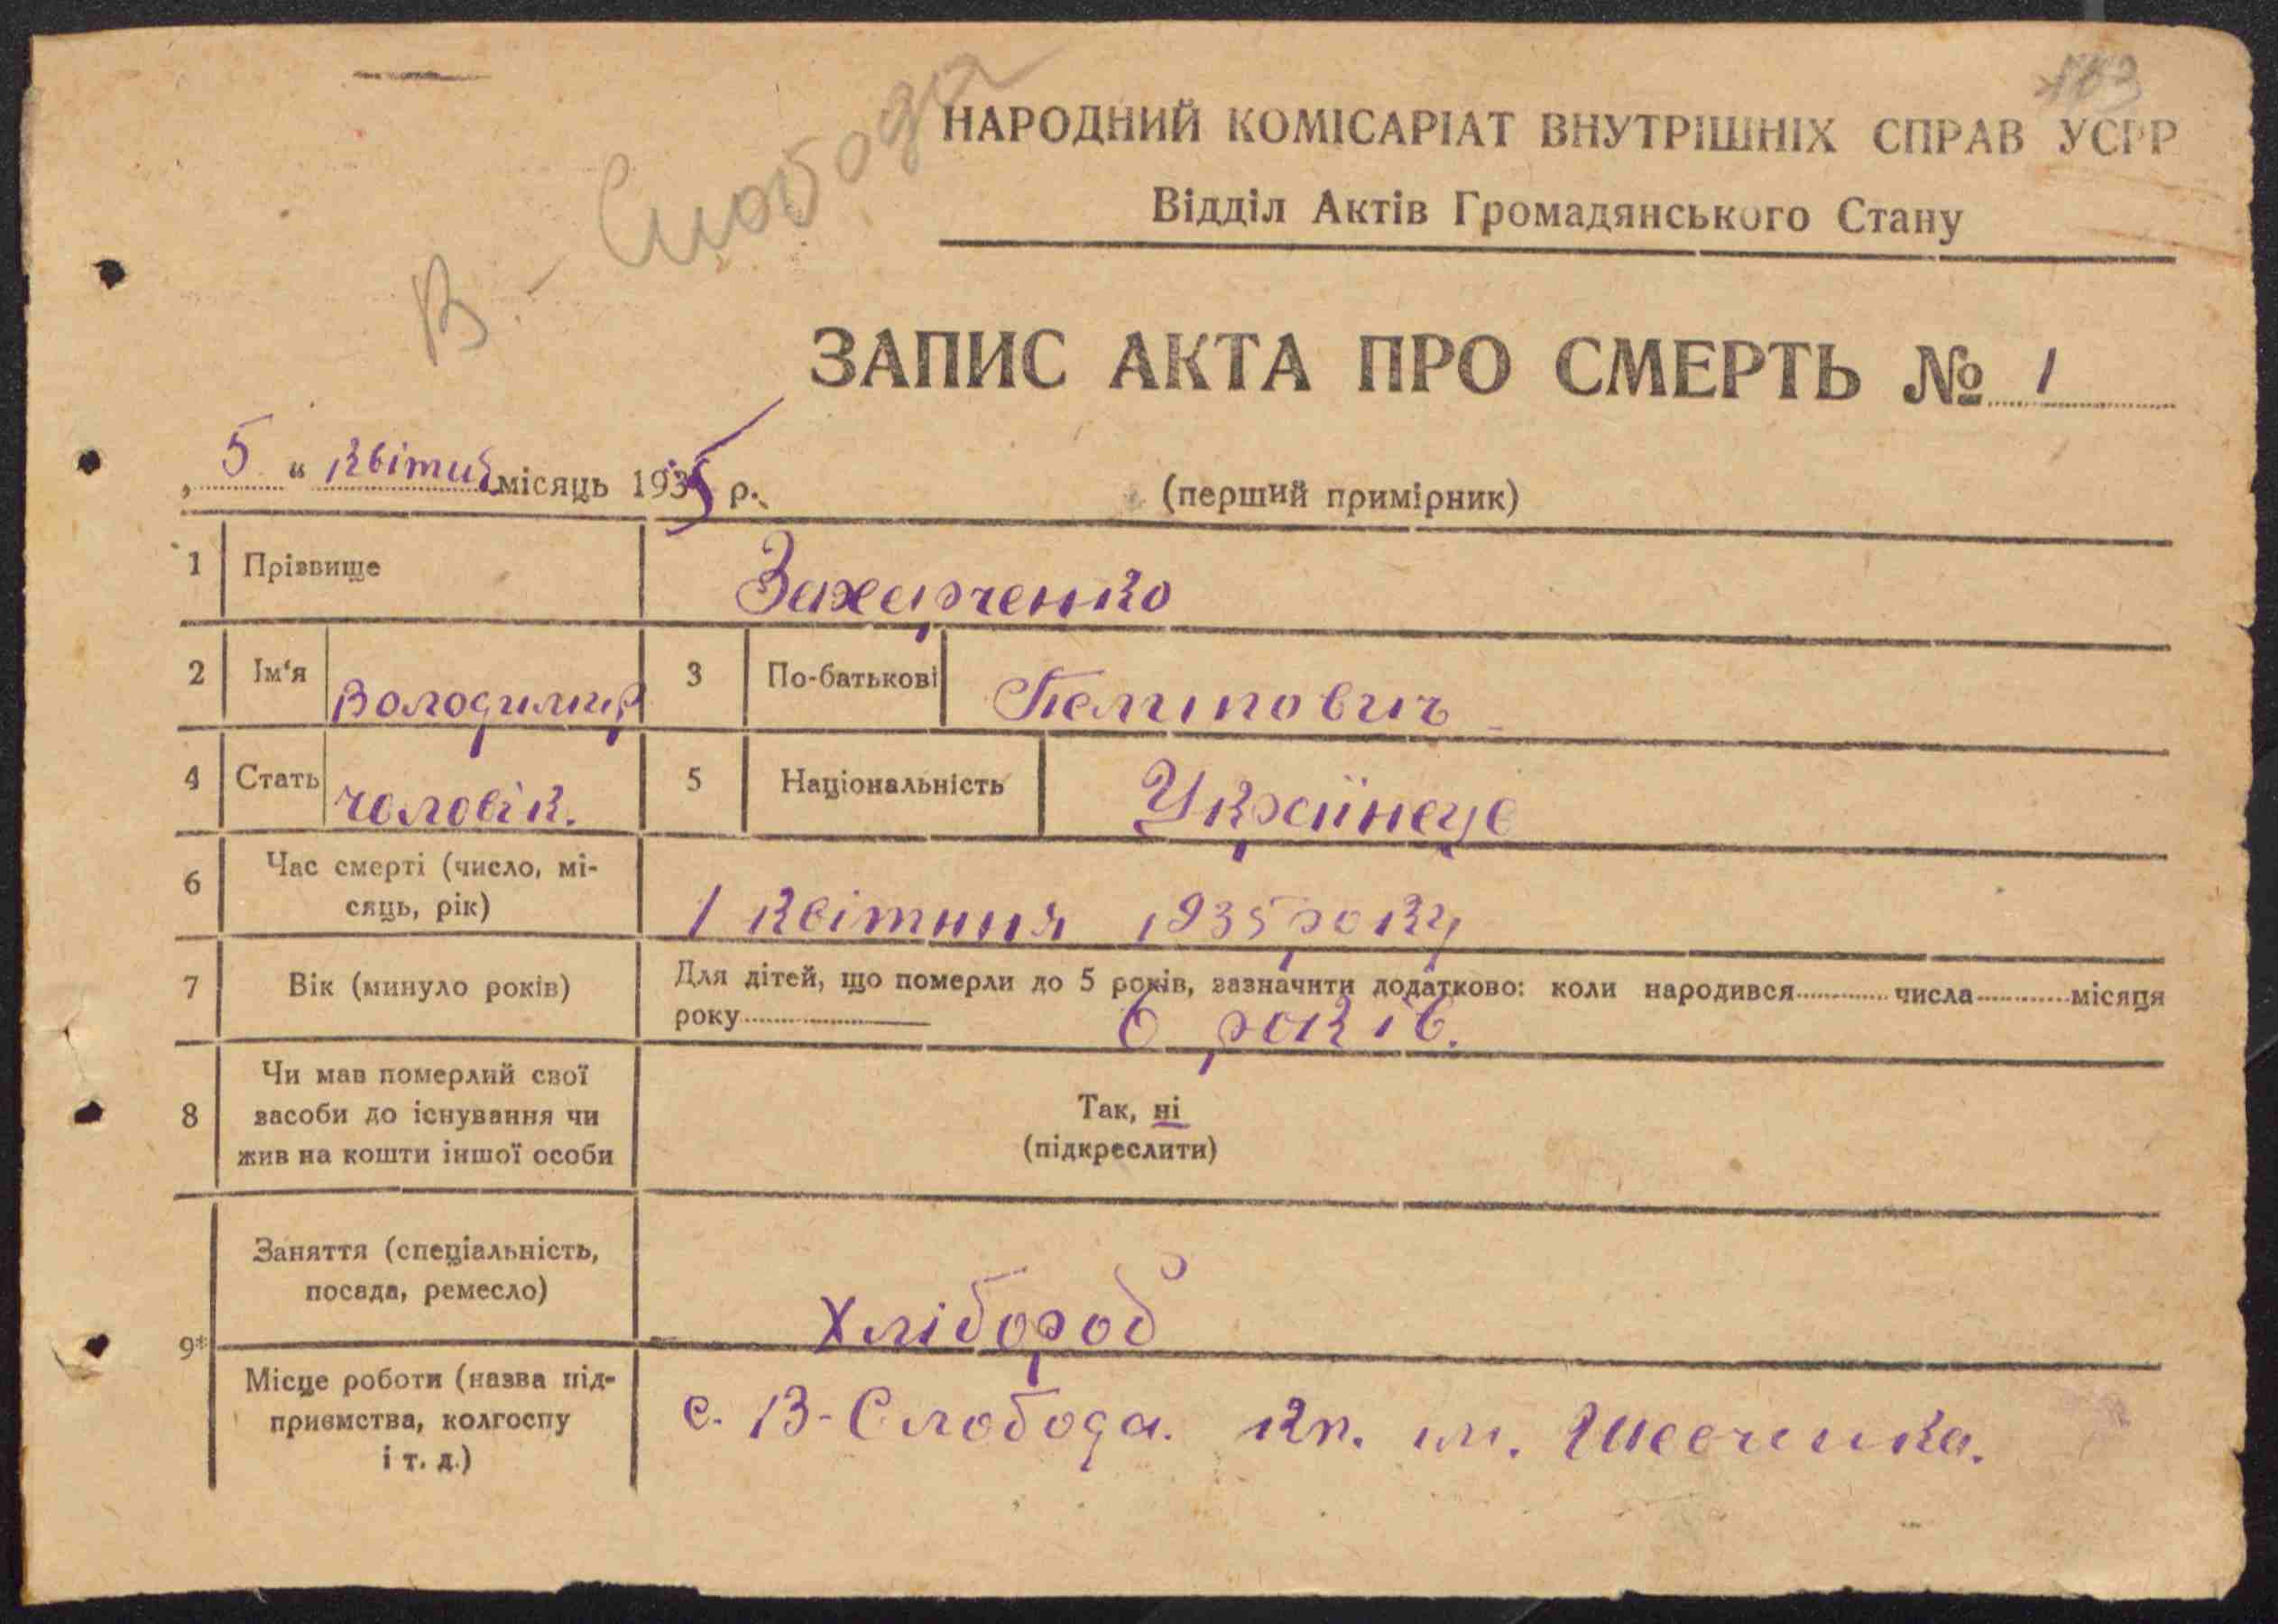 103
В.- Слобода
НАРОДНИЙ КОМІСАРІАТ ВНУТРІШНІХ СПРАВ УСРР
Відділ Актів Громадянського Стану
ЗАПИС АКТА ПРО СМЕРТЬ № 1
„ 5 “ квітня місяць 1935 р. (перший примірник)
1 Прізвище Захарченко
2 Ім'я Володимир 3 По-батькові Пелипович
4 Стать чоловік. 5 Національність Українець
6 Час смерті (число, мі-
сяць, рік) 1 квітння 1935 року
7 Вік (минуло років) Для дітей, що померли до 5 років, зазначити додатково: коли народився............числа............місяця
року............ 6 років.
8 Чи мав померлий свої
засоби до існування чи
жив на кошти іншої особи
Так, ні
(підкреслити)
9* Заняття (спеціальність,
посада, ремесло) Хлібороб
Місце роботи (назва під-
приємства, колгоспу
і т. д.) с. В-Слобода. кп. ім.